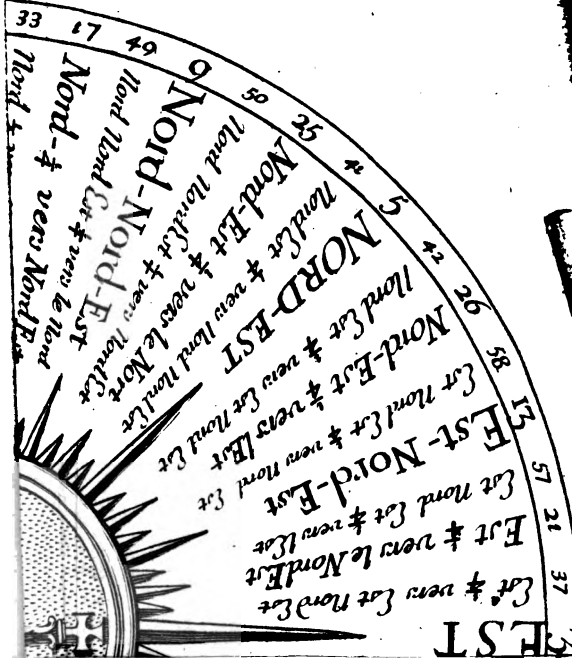 33
17
49
9
50
25
41
5
42
26
58
13
57
21
37
3
Nord ¼
Nord-¼ vers Nord Est
Nord Nord Est ¼ vers le Nord
Nord-Nord-Est
Nord Nord Est ¼ vers Nord Est
Nord-Est ¼ vers le Nort
Nord Est ¼ vers Nord Nord Est
NORD-EST
Nord Est ¼ vers Est Nord Est
Nord-Est ¼ vers lEst
Est Nord Est ¼ vers Nord Est
Est-Nord-Est
Est Nord Est ¼ vers lEst
Est ¼ vers le NordEst
Est ¼ vers Est Nord Est
EST